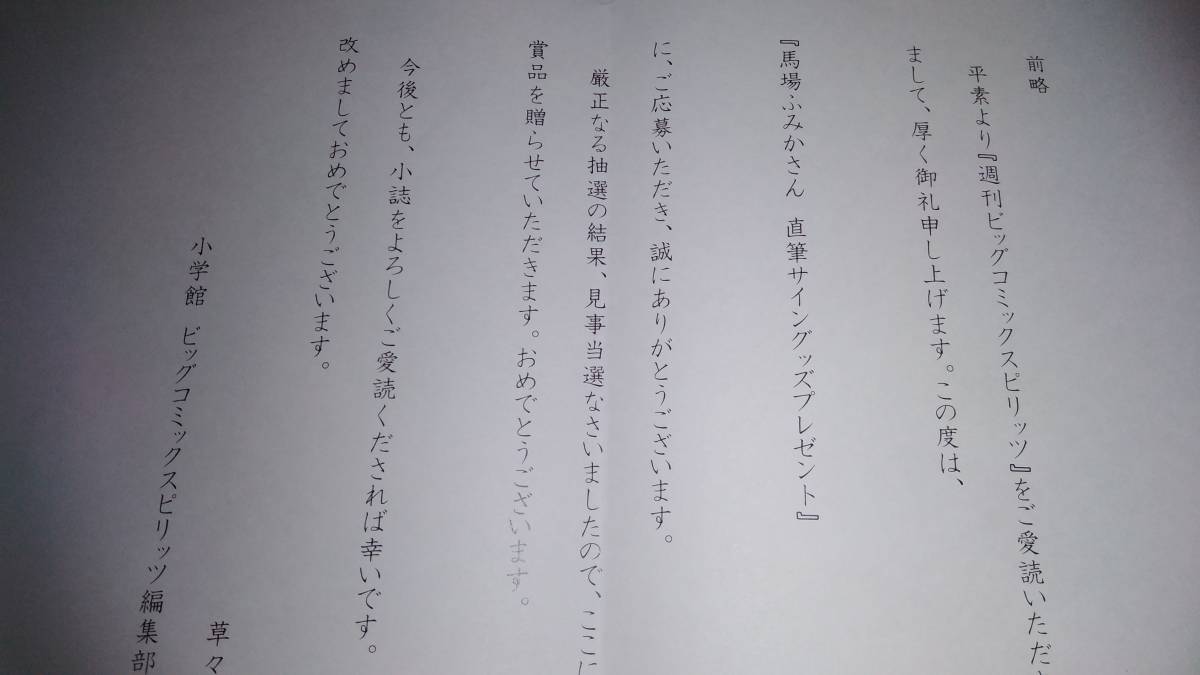 前略
平素より『週刊ビッグコミックスピリッツ』をご愛読いただ
まして、厚く御礼申し上げます。この度は、
『馬場ふみかさん　直筆サイングッズプレゼント』
に、ご応募いただき、誠にありがとうございます。
厳正なる抽選の結果、見事当選なさいましたので、ここに
賞品を贈らせていただきます。おめでとうございます。
今後とも、小誌をよろしくご愛読くだされば幸いです。
改めましておめでとうございます。
草々
小学館　ビッグコミックスピリッツ編集部